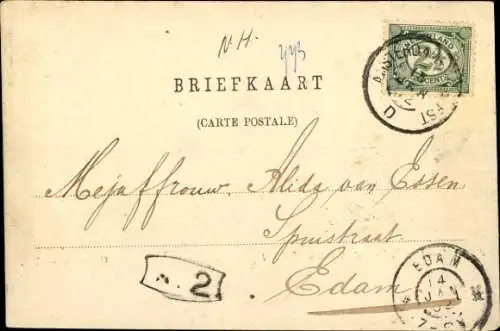 N.H.
NEDERLAND
2½
CENT
AMSTERDAM
BRIEFKAART
(CARTE POSTALE)
Mejaffrouw. Alida van Essen
Spuistraat.
Edam
2
EDAM
14
JAN